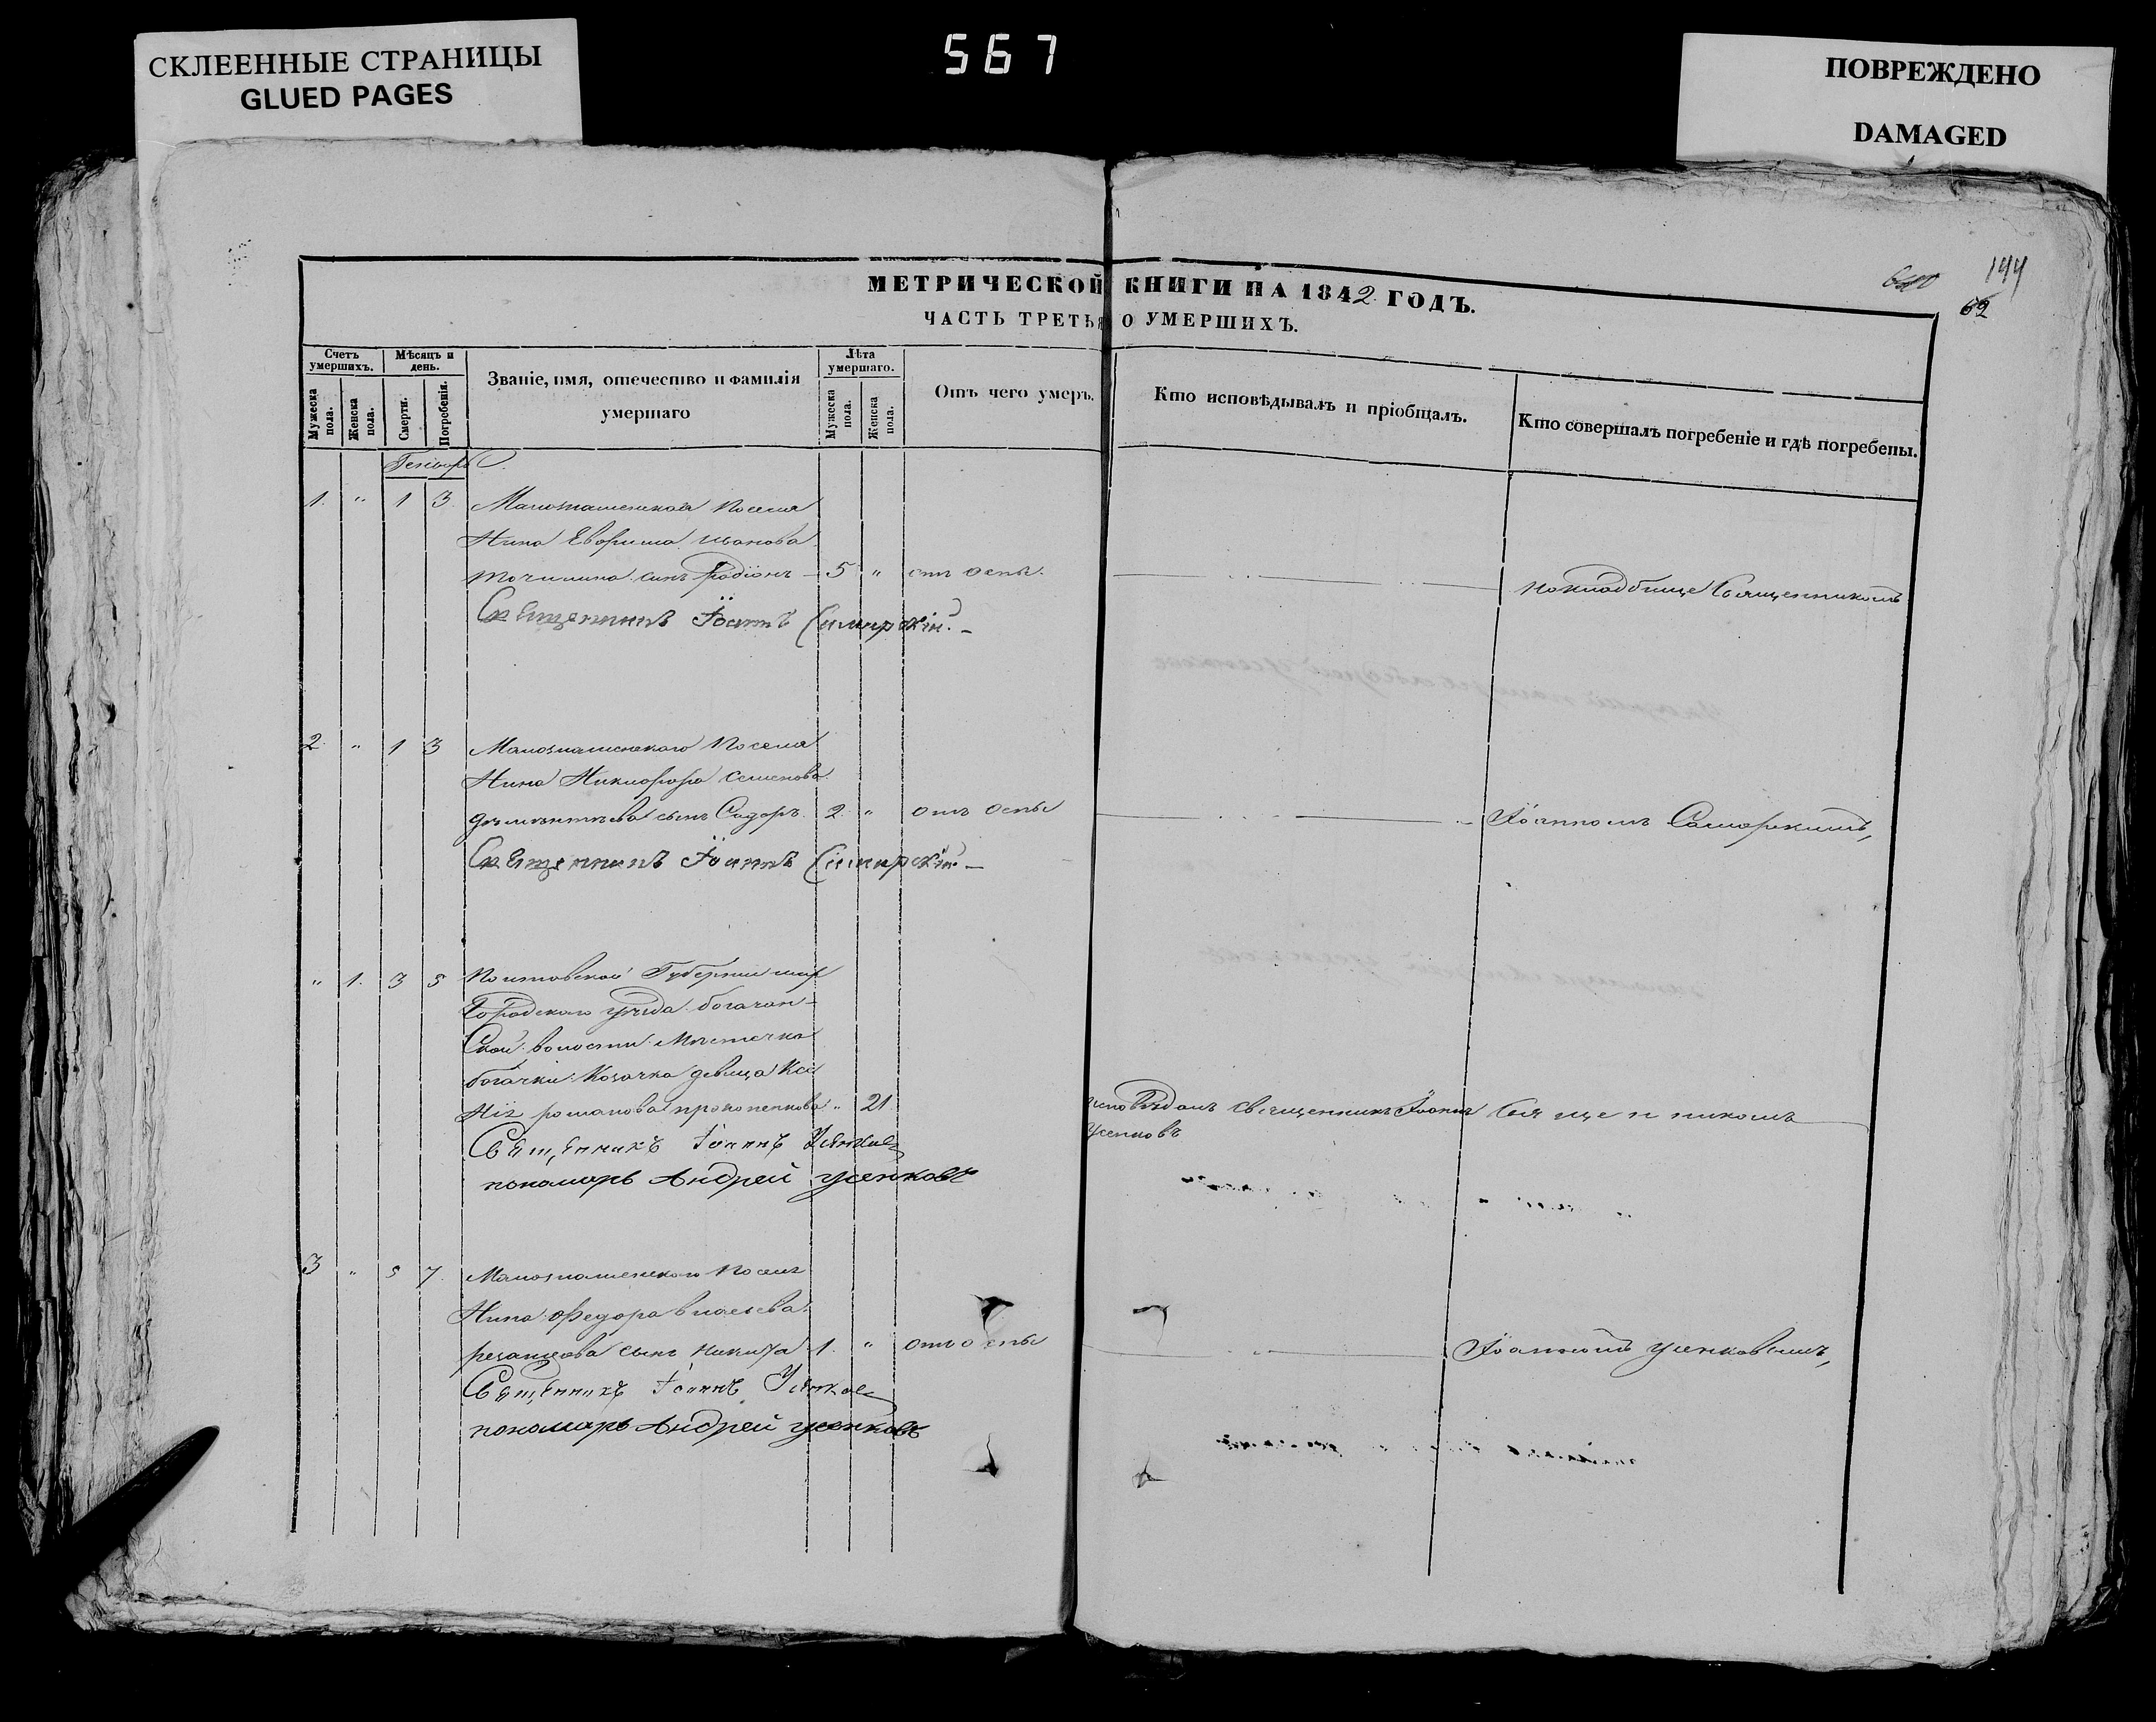 СКЛЕЕННЫЕ СТРАНИЦЫ
GLUED PAGES
567
ПОВРЕЖДЕНО
DAMAGED
МЕТРИЧЕСКОЙ КНИГИ НА 1842 ГОДЪ.
62
ЧАСТЬ ТРЕТЬЯ О УМЕРШИХЪ.
Счетъ умершихъ.
Мѣсяцъ и день.
Званіе, имя, отечество и фамилія умершаго
Лѣта умершаго.
Отъ чего умеръ.
Кто исповѣдывалъ и пріобщалъ.
Кто совершалъ погребеніе и гдѣ погребены.
Мужеска пола.
Женска пола.
Смерти.
Погребенія.
Мужеска пола.
Женска пола.
Генварь
1. " 1 3 посела
нина Иванова
точилина сынъ Родіонъ 5 " отъ оспы.
на кладбище Священникомъ
Священникъ Іоаннъ
2. " 1 3 посела
нина Никифора Семенова
сынъ Сидоръ. 2 " отъ оспы
Іоанномъ
Священникъ Іоаннъ
" 1. 3 5 Полтавской Губерніи мир
городского уѣзда богачан-
ской волости Мѣстечка
богачки Козачка девица Ксе
нія романова прокопенкова " 21
исповѣдалъ священникъ Іоаннъ Священникомъ
Усенковъ
Священникъ Іоаннъ Усенковъ
пономарь Андрей усенковъ
3 " 5 7. поселя
нина Федора
сынъ никита 1. " отъ оспы
Іоанномъ усенковымъ,
Священникъ Іоаннъ Усенковъ
пономарь Андрей усенковъ